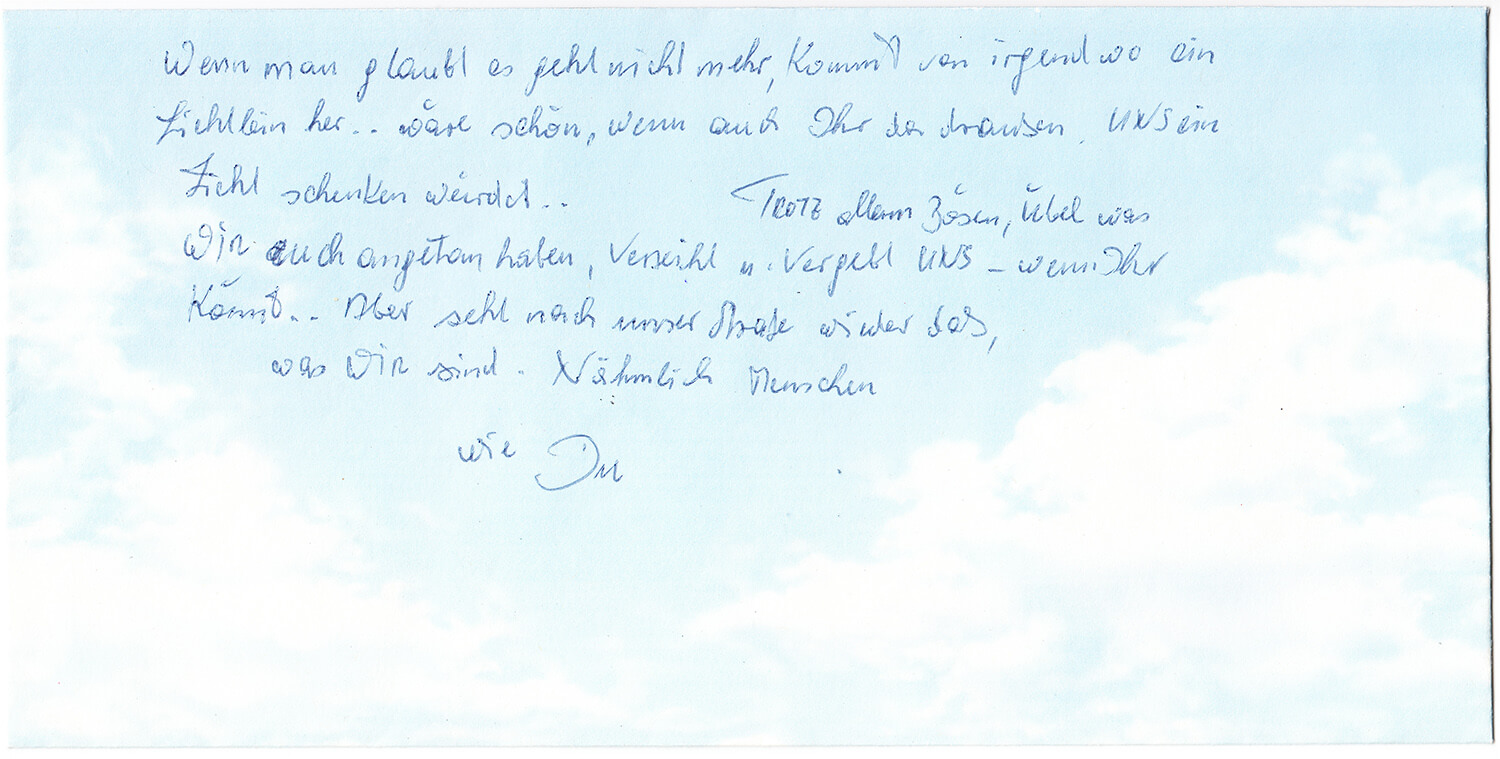 Wenn man glaubt es geht nicht mehr, Kommt von irgendwo ein
Lichtlein her.. wäre schön, wenn auch Ihr da drausen UNS ein
Licht schenken würdet.. Trotz allem Bösen, Übel was
WiR euch angetan haben, Verzeiht u. Vergebt UNS – wenn Ihr
Könnt.. Aber seht nach unser Strafe wieder das,
was WiR sind. Nähmlich Menschen
wie Du